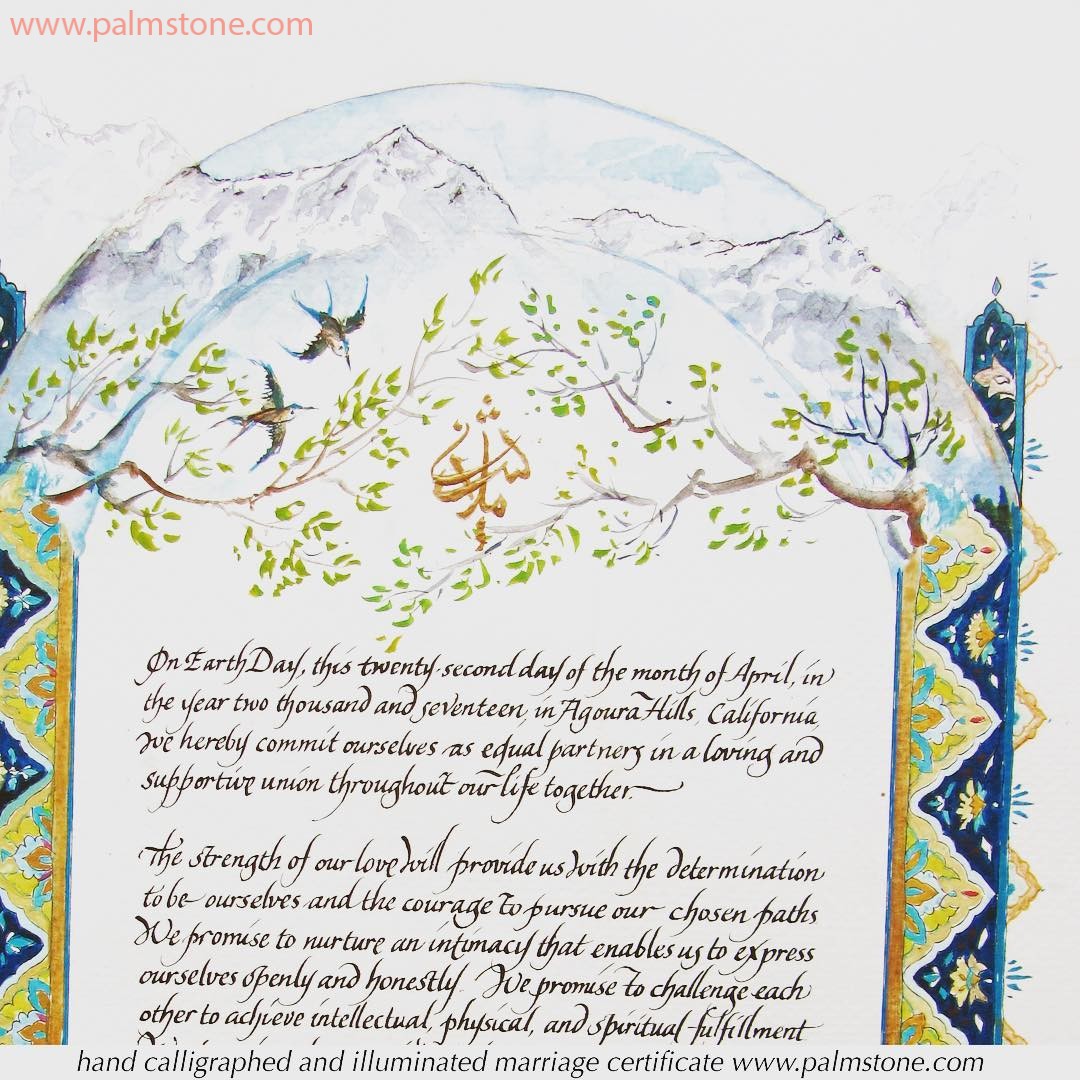 www.palmstone.com
On Earth Day, this twenty-second day of the month of April, in
the year two thousand and seventeen, in Agoura Hills, California,
we hereby commit ourselves as equal partners in a loving and
supportive union throughout our life together.
The strength of our love will provide us with the determination
to be ourselves and the courage to pursue our chosen paths
We promise to nurture an intimacy that enables us to express
ourselves openly and honestly. We promise to challenge each
other to achieve intellectual, physical, and spiritual fulfillment
hand calligraphed and illuminated marriage certificate www.palmstone.com